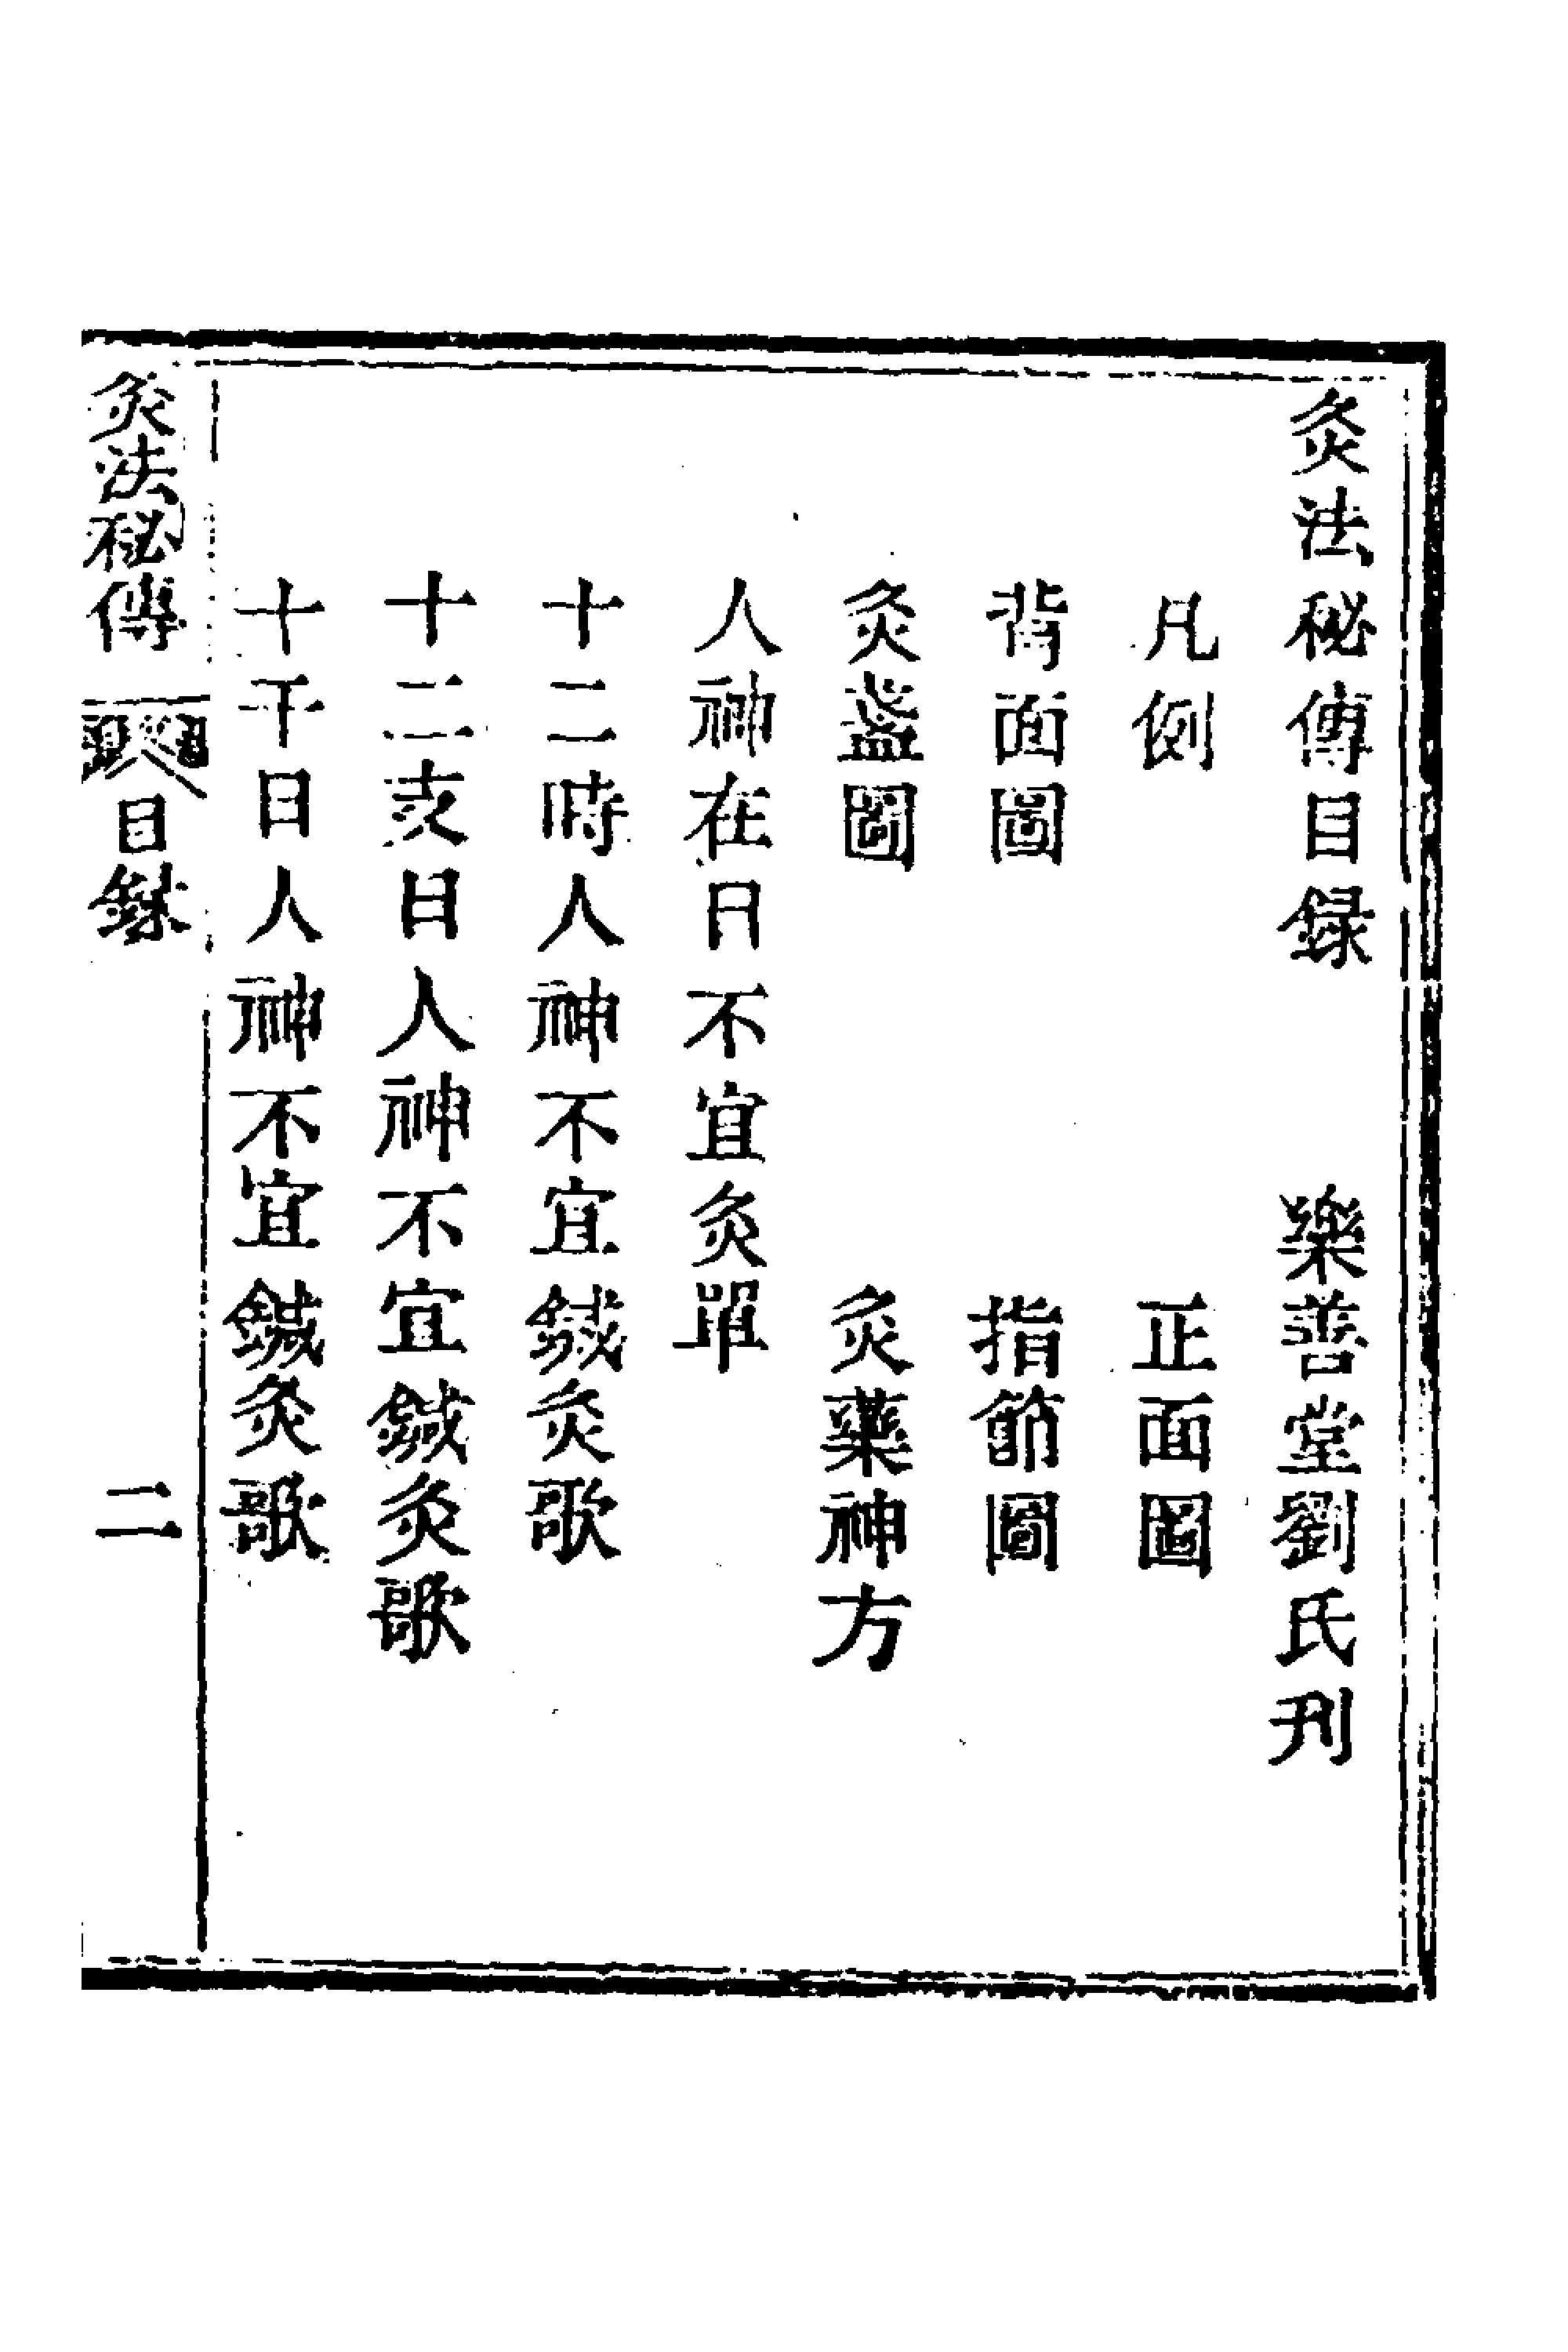 灸法秘傳目録　樂善堂劉氏刋
凡例　正面圖
背面圖　指節圖
灸盞圖　灸藥神方
人神在日不宜灸單
十二時人神不宜鍼灸歌
十二支日人神不宜鍼灸歌
十干日人神不宜鍼灸歌
灸法秘傳　目録　二